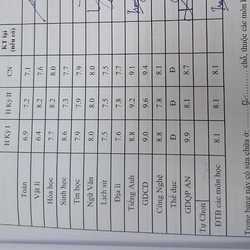 H Kỳ I H Kỳ II CN KT lại
(nếu có)
Toán 6.9 7.2 7.1
Vật lí 6.4 8.2 7.6
Hóa học 7.7 8.2 8.0
Sinh học 8.6 7.3 7.7
Tin học 7.9 7.9 7.9
Ngữ Văn 8.0 8.0 8.0
Lịch sử 7.5 7.5 7.5
Địa lí 7.6 7.8
Tiếng Anh 8.8 9.2 9.1
GDCD 9.0 9.6 9.4
Công Nghệ 8.8 7.8 8.1
Thể dục Đ Đ Đ
GDQP AN 9.9 8.1 8.7
Tự Chọn
ĐTB các môn học 8.1 8.1 8.1
này có sửa chữa ở: chỗ, thuộc các môn